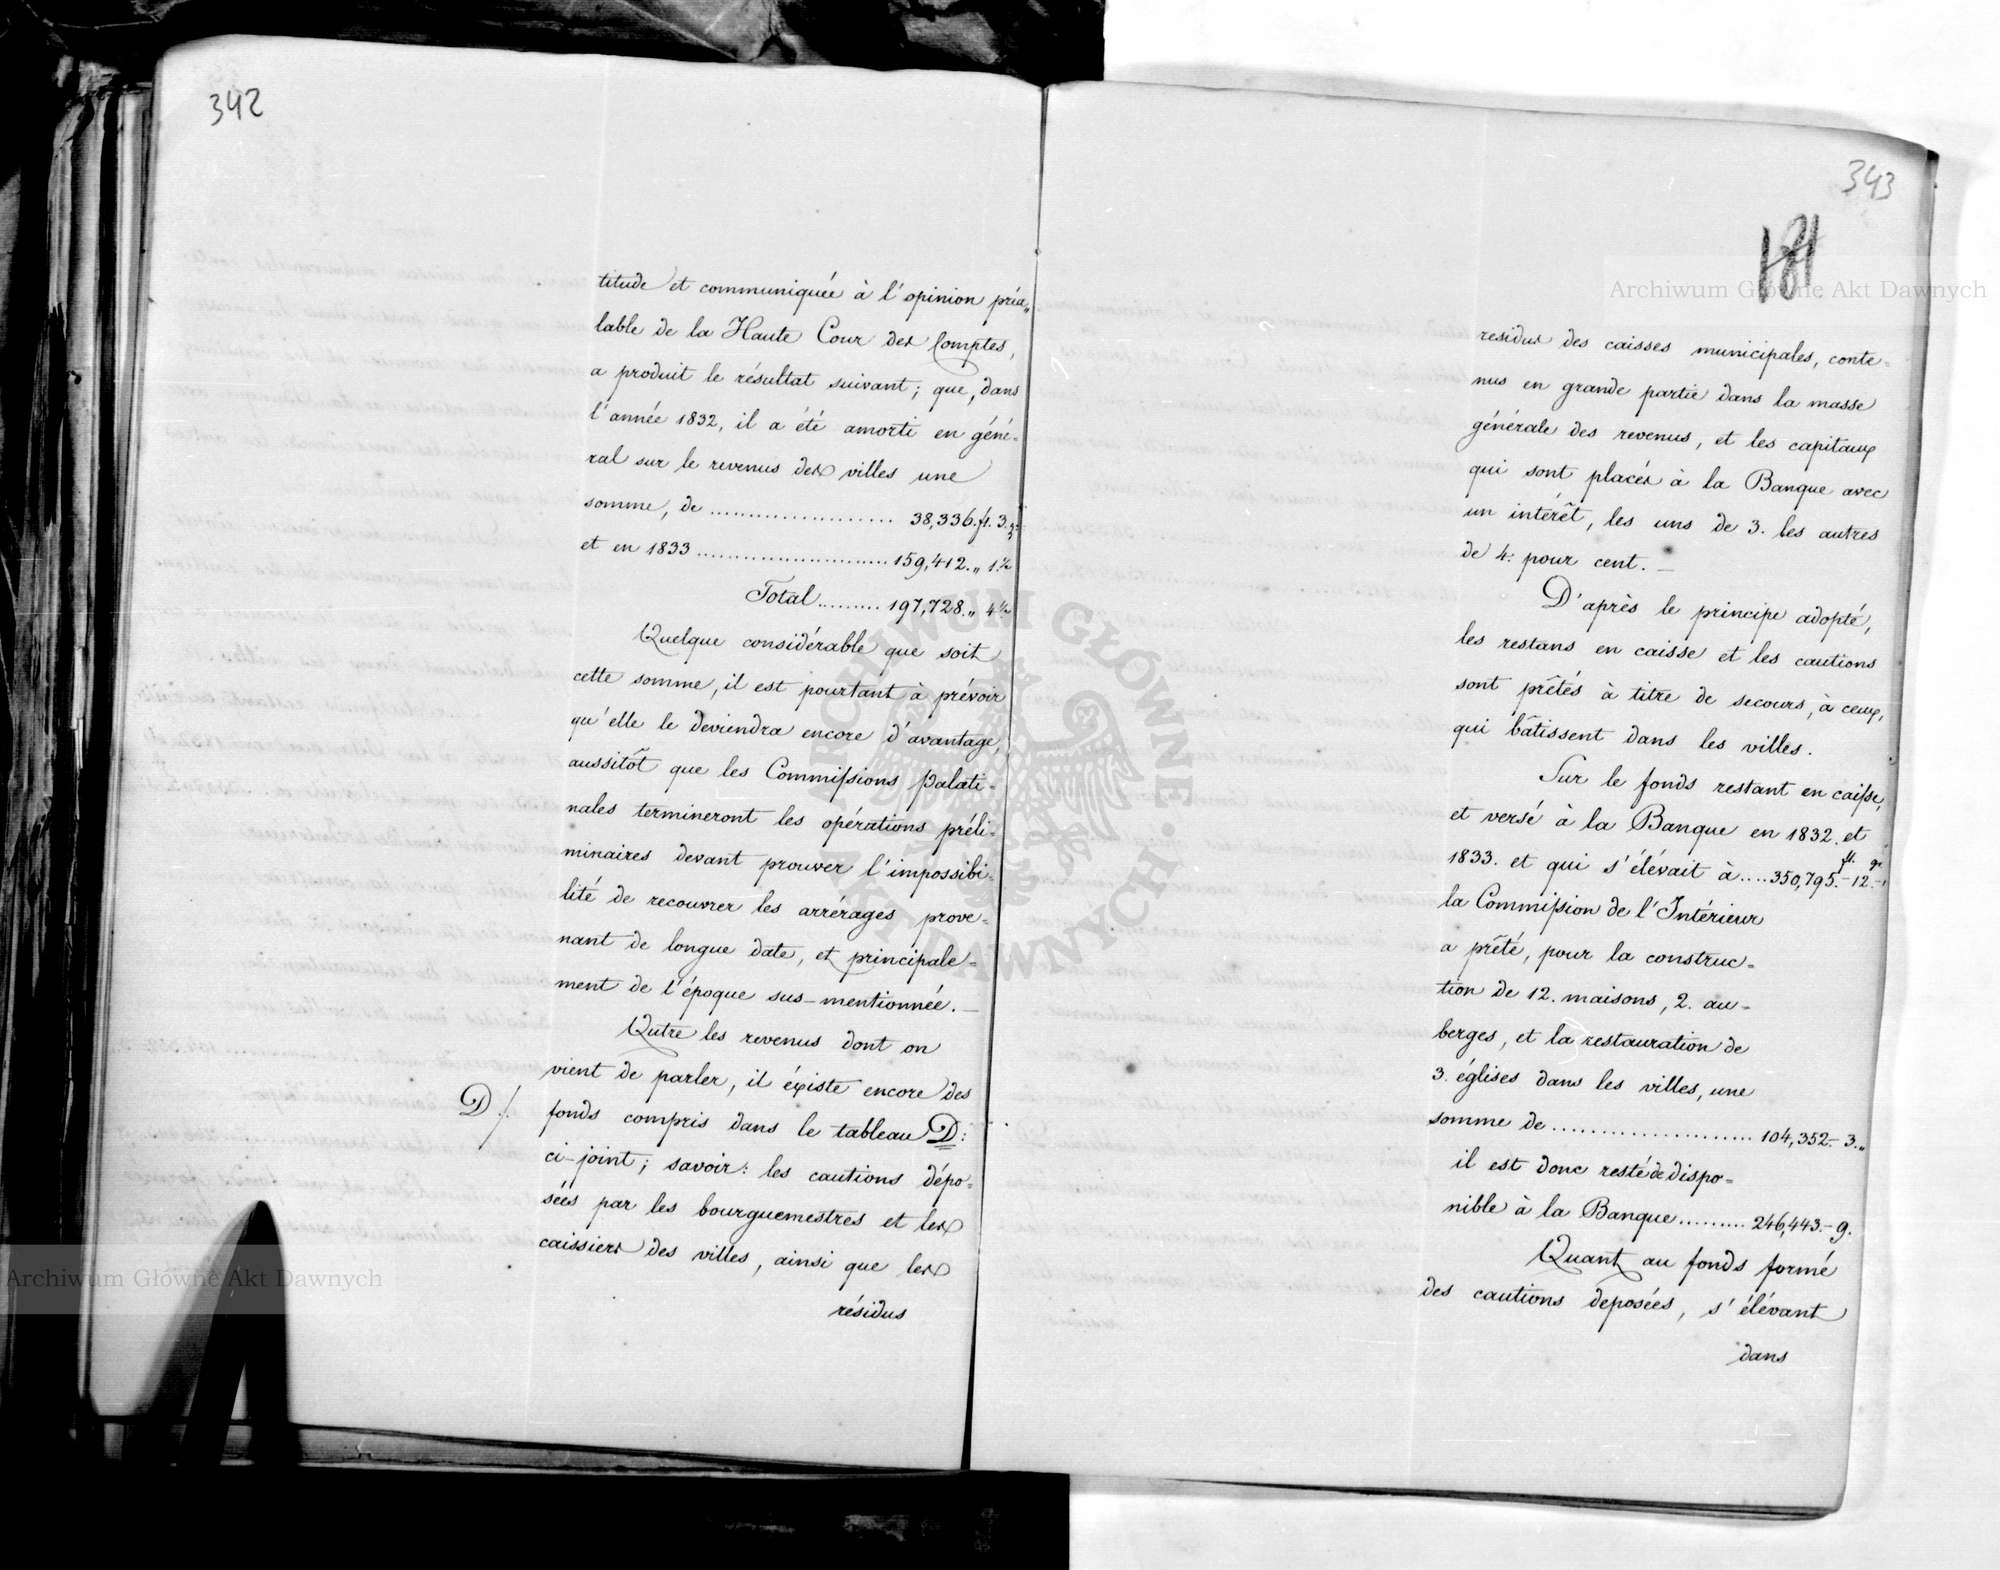 342
titude et communiquée à l'opinion préa„
lable de la Haute Cour des Comptes,
a produit le résultat suivant; que, dans
l'année 1832, il a été amorti en géné=
ral sur le revenus des villes une
somme, de ..................... 38,336. fl. 3. g.
et en 1833 ........................ 159,412. „ 1.½
Total ......... 197,728. „ 4½
Quelque considérable que soit
cette somme, il est pourtant à prévoir
qu'elle le deviendra encore d'avantage,
aussitôt que les Commissions palati=
nales termineront les opérations préli=
minaires devant prouver l'impossibi=
lité de recouvrer les arrérages prove=
nant de longue date, et principale=
ment de l'époque sus-mentionnée. —
Outre les revenus dont on
vient de parler, il éxiste encore des
D./. fonds compris dans le tableau D:
ci-joint; savoir: les cautions dépo=
sées par les bourguemestres et les
caissiers des villes, ainsi que les
résidus
343
181
residus des caisses municipales, conte=
nus en grande partie dans la masse
générale des revenus, et les capitaux
qui sont placés à la Banque avec
un intérêt, les uns de 3. les autres
de 4. pour cent. —
D'après le principe adopté,
les restans en caisse et les cautions
sont prêtés à titre de secours, à ceux,
qui bâtissent dans les villes.
Sur le fonds restant en caisse,
et versé à la Banque en 1832. et
1833. et qui s'élévait à .... 350,795. fl. - 12. gr. -
la Commission de l'Intérieur
a prêté, pour la construc=
tion de 12. maisons, 2. au=
berges, et la restauration de
3. églises dans les villes, une
somme de ...................... 104,352. - 3. „
il est donc resté de dispo=
nible à la Banque ......... 246,443. - 9.
Quant au fonds formé
des cautions deposées, s'élévant
dans
Archiwum Główne Akt Dawnych
Archiwum Główne Akt Dawnych
ARCHIWUM GŁÓWNE AKT DAWNYCH